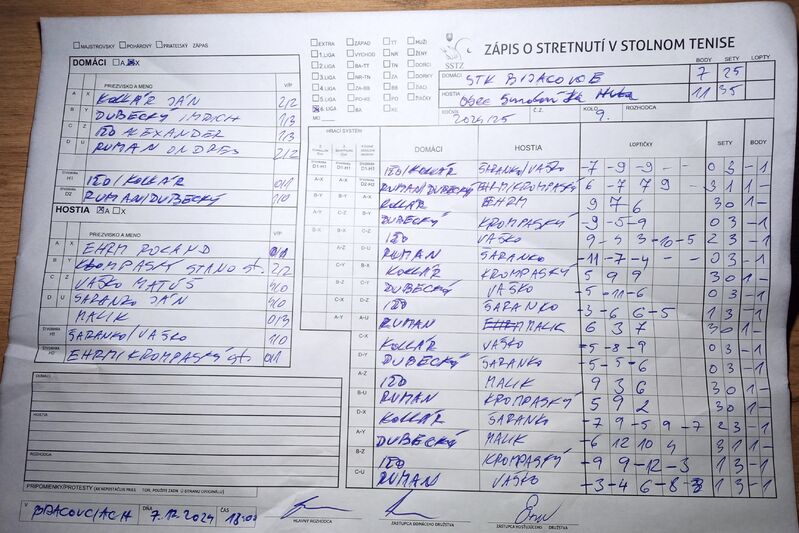 MAJSTROVSKÝ POHÁROVÝ PRIATEĽSKÝ ZÁPAS
DOMÁCI A X
PRIEZVISKO A MENO V/P
A X KOLLÁR JÁN 2/2
B Y DUBECKÝ IMRICH 1/3
C Z IĽO ALEXANDER 1/3
D U RUMAN ONDREJ 2/2
ŠTVORHRA H1 IĽO/KOLLÁR 0/1
ŠTVORHRA D2 RUMAN/DUBECKÝ 1/0
HOSTIA A X
PRIEZVISKO A MENO V/P
A X EHRM ROLAND 0/1
B Y KROMPASKÝ STANO st. 2/2
C Z VAŠKO MATÚŠ 4/0
D U ŠARANKO JÁN 4/0
MALIK 0/3
ŠTVORHRA ŠARANKO/VAŠKO 1/0
ŠTVORHRA EHRM/KROMPASKÝ st. 0/1
DOMÁCI
HOSTIA
ROZHODCA
PRIPOMIENKY/PROTESTY
V BRACOVCIACH DŇA 7.12.2024 ČAS 18:00
EXTRA ZÁPAD TT MUŽI
1.LIGA VÝCHOD NR ŽENY
2.LIGA BA-TT TN DORCI
3.LIGA NR-TN ZA DORKY
4.LIGA ZA-BB BB ŽIACI
5.LIGA PO-KE PO ŽIAČKY
6.LIGA BA KE
MO
SSTZ
ZÁPIS O STRETNUTÍ V STOLNOM TENISE
BODY SETY LOPTY
DOMÁCI STK BIJACOVCE 7 25
HOSTIA Obec Smolnícka Huta 11 35
ROČNÍK 2024/25 Č.Z. KOLO 9.
HRACÍ SYSTÉM DOMÁCI HOSTIA LOPTIČKY SETY BODY
IĽO/KOLLÁR ŠARANKO/VAŠKO -7 -9 -9 - - 0 3 -1
RUMAN/DUBECKÝ EHRM/KROMPASKÝ 6 -7 7 9 - 3 1 1 -
KOLLÁR EHRM 9 7 6 3 0 1 -
DUBECKÝ KROMPASKÝ -9 -5 -9 0 3 -1
IĽO VAŠKO -9 -4 3 -10 -5 2 3 -1
RUMAN ŠARANKO -11 -7 -4 - - 0 3 -1
KOLLÁR KROMPASKÝ 5 9 9 3 0 1 -
DUBECKÝ VAŠKO -5 -11 -6 0 3 -1
IĽO ŠARANKO -3 -6 6 -5 1 3 -1
RUMAN MALIK 6 3 7 3 0 1 -
KOLLÁR VAŠKO -5 -8 -9 0 3 -1
DUBECKÝ ŠARANKO -5 -5 -6 0 3 -1
IĽO MALIK 9 3 6 3 0 1 -
RUMAN KROMPASKÝ 5 9 2 3 0 1 -
KOLLÁR ŠARANKO -7 9 -5 9 -7 2 3 -1
DUBECKÝ MALIK -6 12 10 4 3 1 1 -
IĽO KROMPASKÝ -9 9 -12 -3 1 3 -1
RUMAN VAŠKO -3 -4 6 -8 1 3 -1
HLAVNÝ ROZHODCA
ZÁSTUPCA DOMÁCEHO DRUŽSTVA
ZÁSTUPCA HOSŤUJÚCEHO DRUŽSTVA